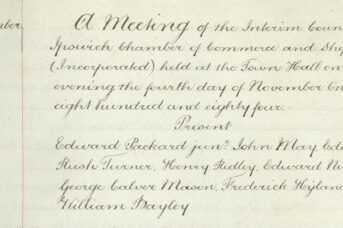 A Meeting of the Interim Coun
Ipswich Chamber of Commerce and Sh
(Incorporated) held at the Town Hall on
evening the fourth day of November On
eight hundred and eighty four.
Present
Edward Packard junr. John May, Ed
Rush Turner, Henry Ridley, Edward
George Calver Mason, Frederick
William Bayley